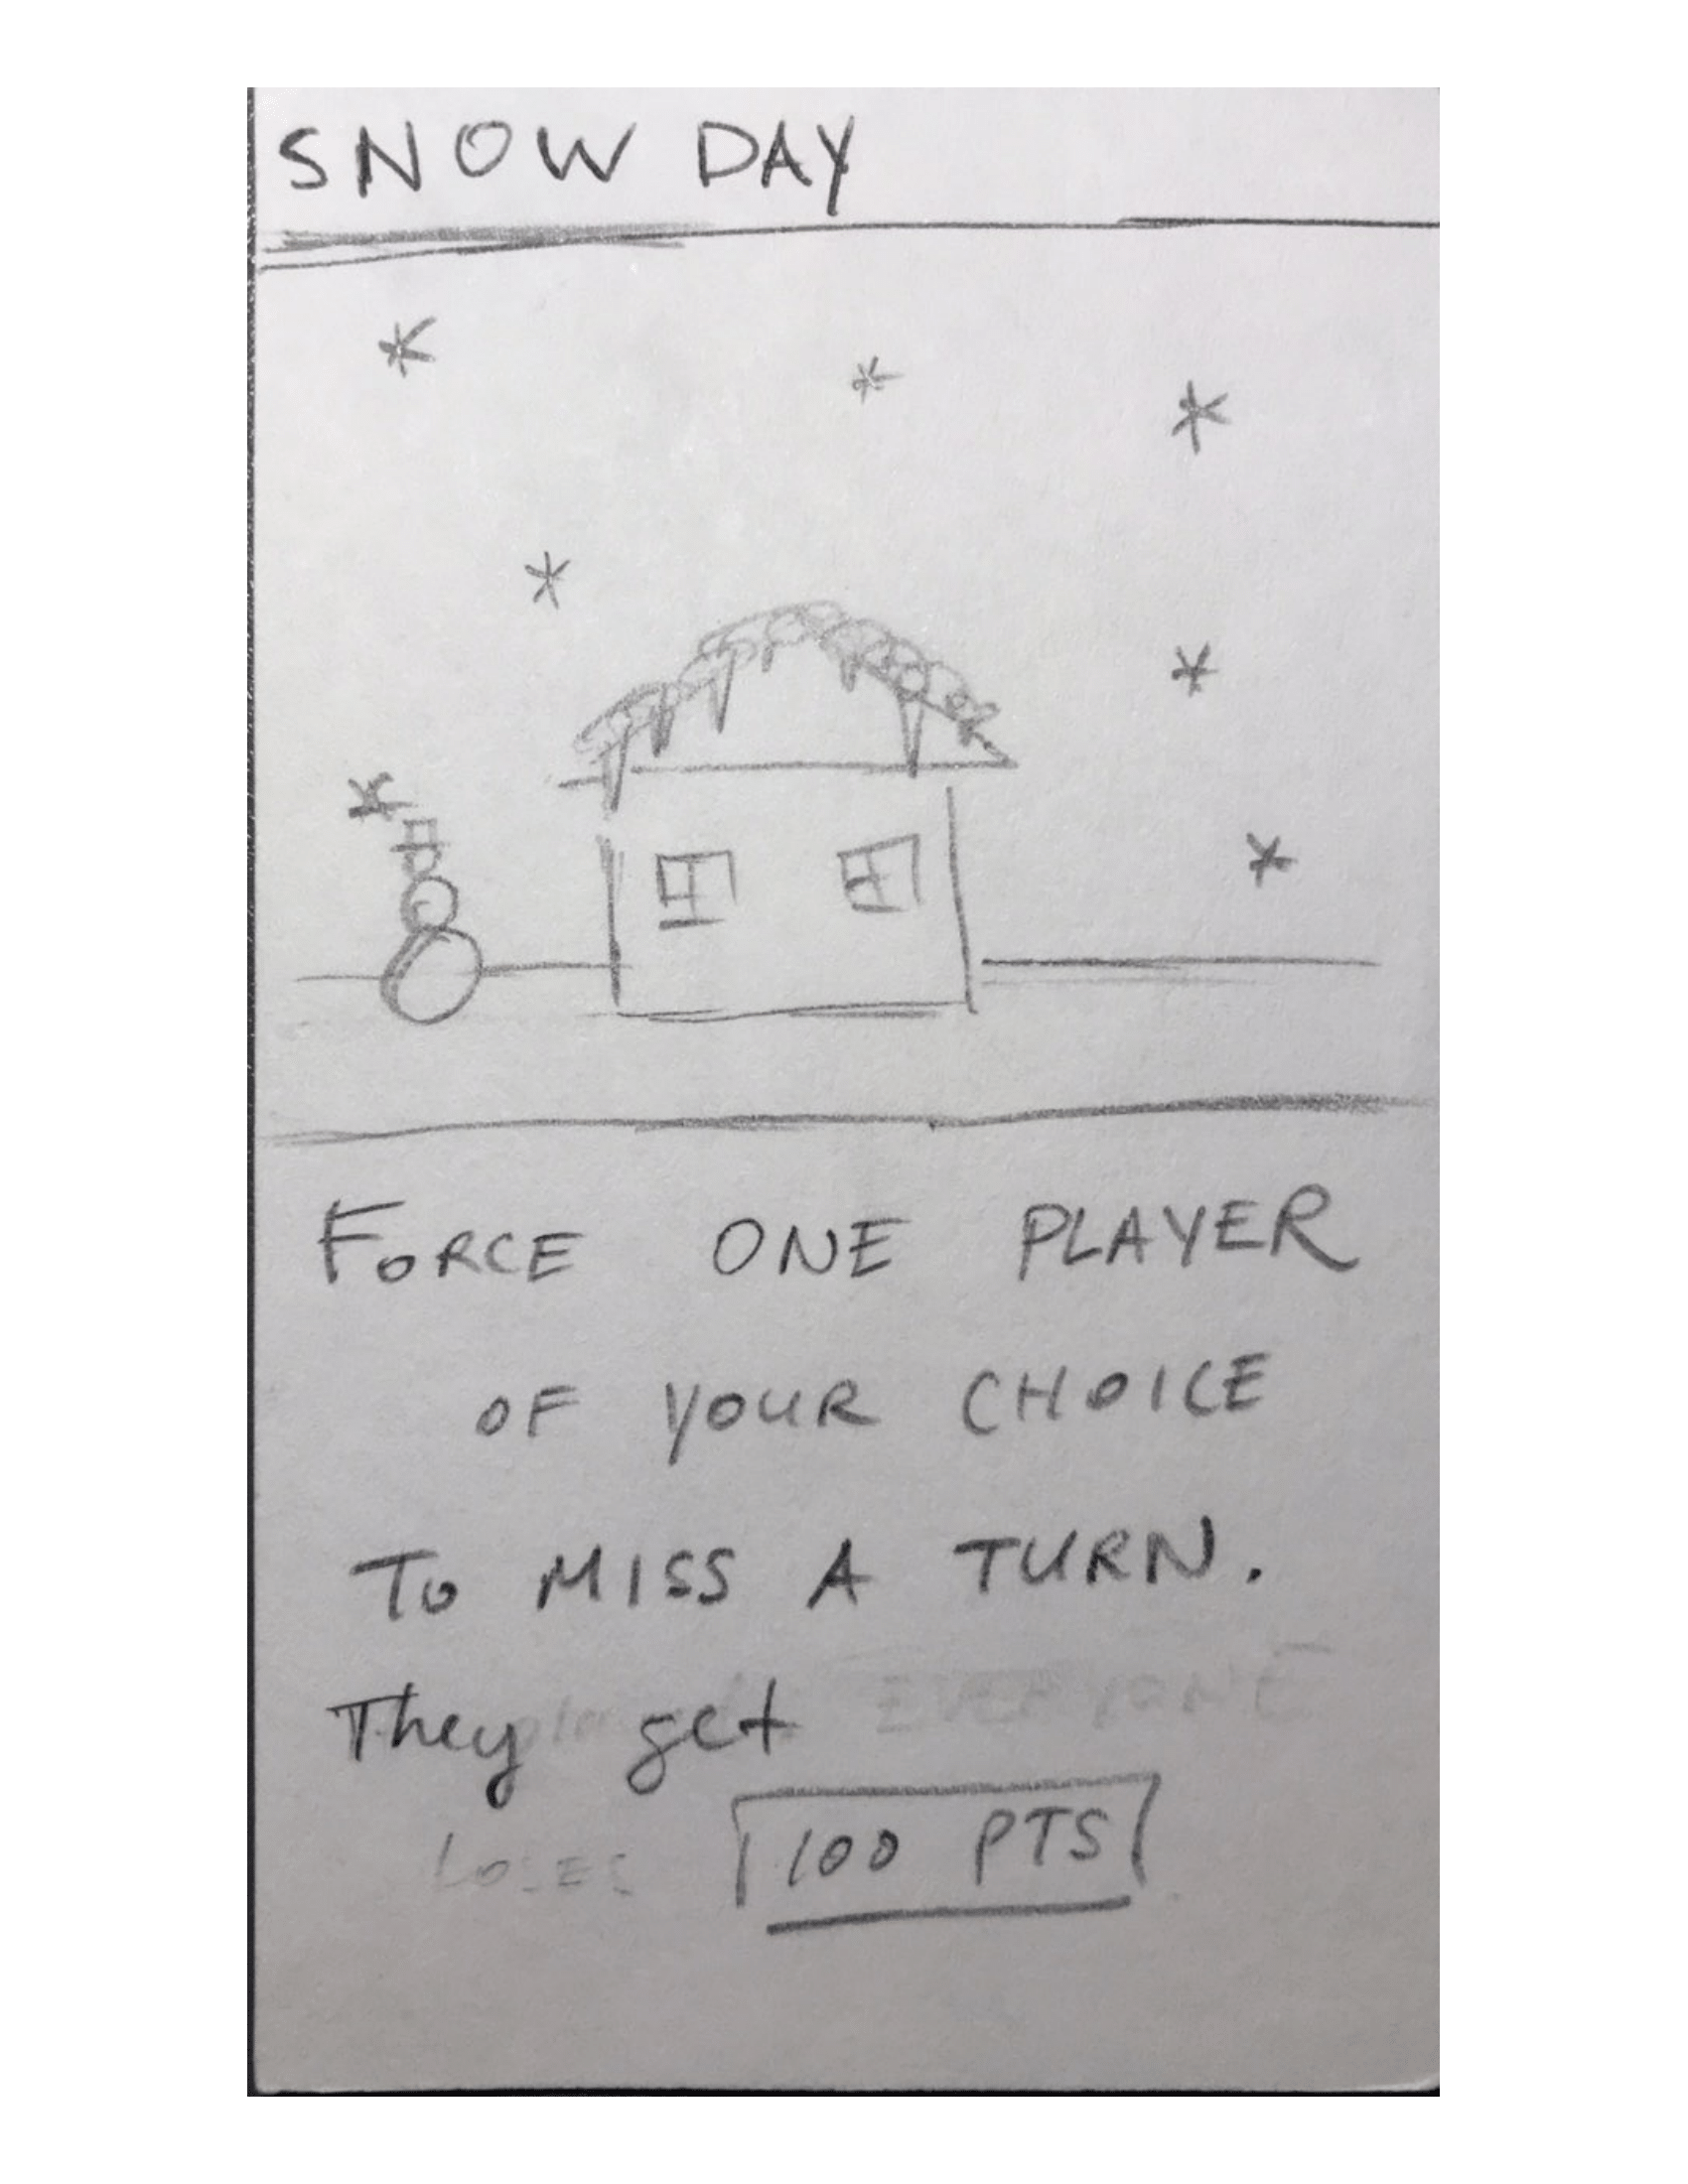 SNOW DAY
FORCE ONE PLAYER
OF YOUR CHOICE
TO MISS A TURN.
They get EVERYONE
LOSES 100 PTS